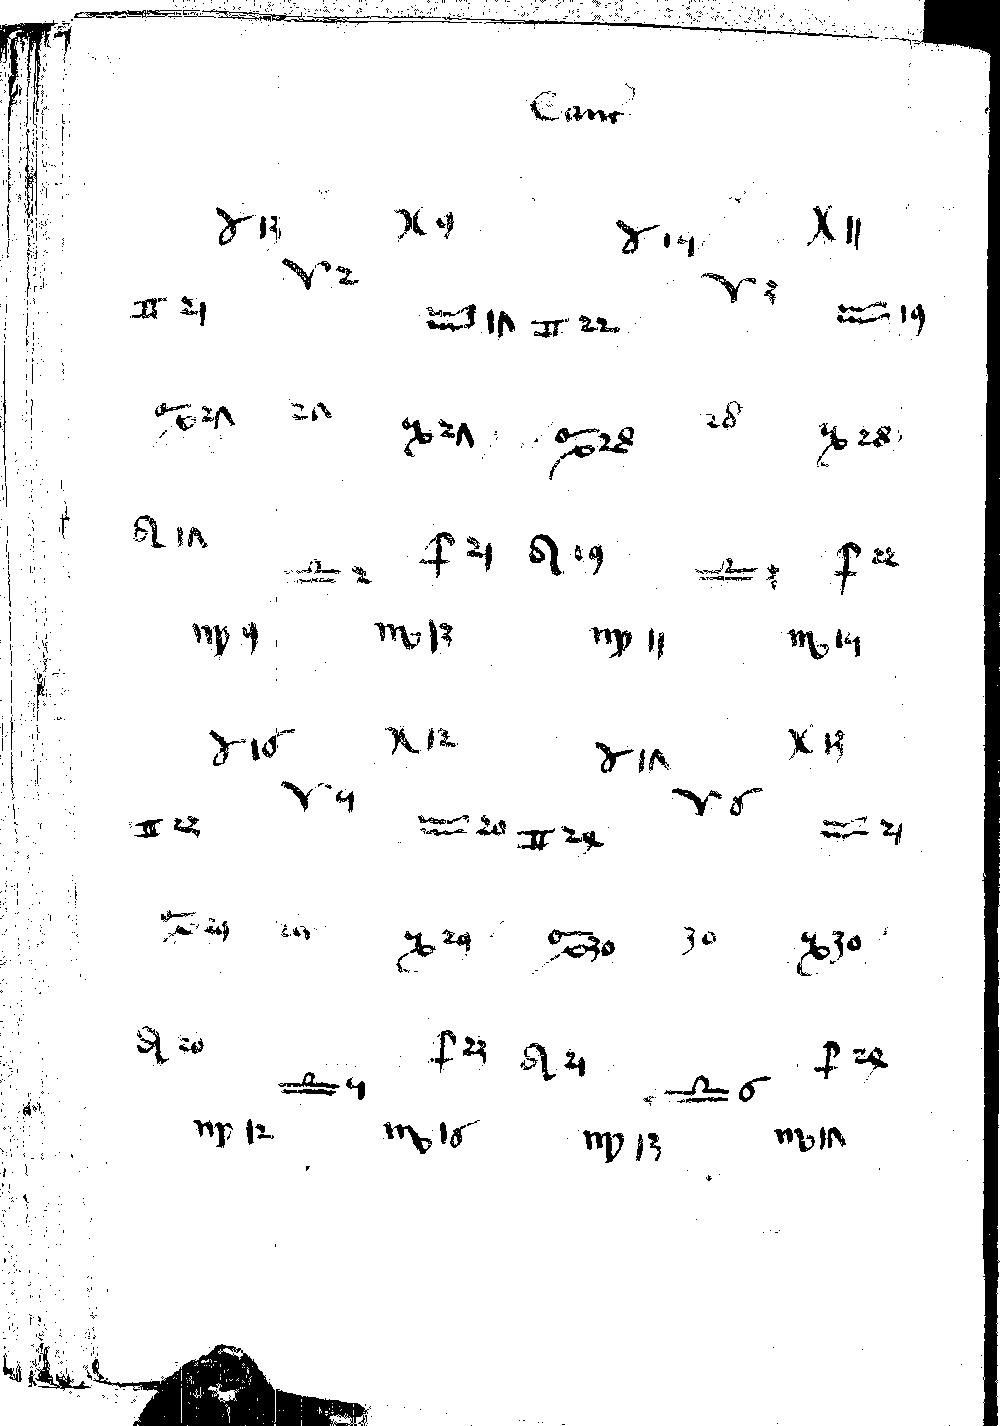 Canc
♉ 13 ♓ 9 ♉ 14 ♓ 11
♈ 2 ♈ 3
♊ 21 ♒ 17 ♊ 22 ♒ 19
♋ 27 27 ♑ 27 ♋ 28 28 ♑ 28
♌ 17 ♐ 21 ♌ 19 ♐ 22
♎ 2 ♎ 3
♍ 9 ♏ 13 ♍ 11 ♏ 14
♉ 16 ♓ 12 ♉ 17 ♓ 13
♈ 4 ♈ 6
♊ 23 ♒ 20 ♊ 24 ♒ 21
♋ 29 29 ♑ 29 ♋ 30 30 ♑ 30
♌ 20 ♐ 23 ♌ 21 ♐ 24
♎ 4 ♎ 6
♍ 12 ♏ 16 ♍ 13 ♏ 17